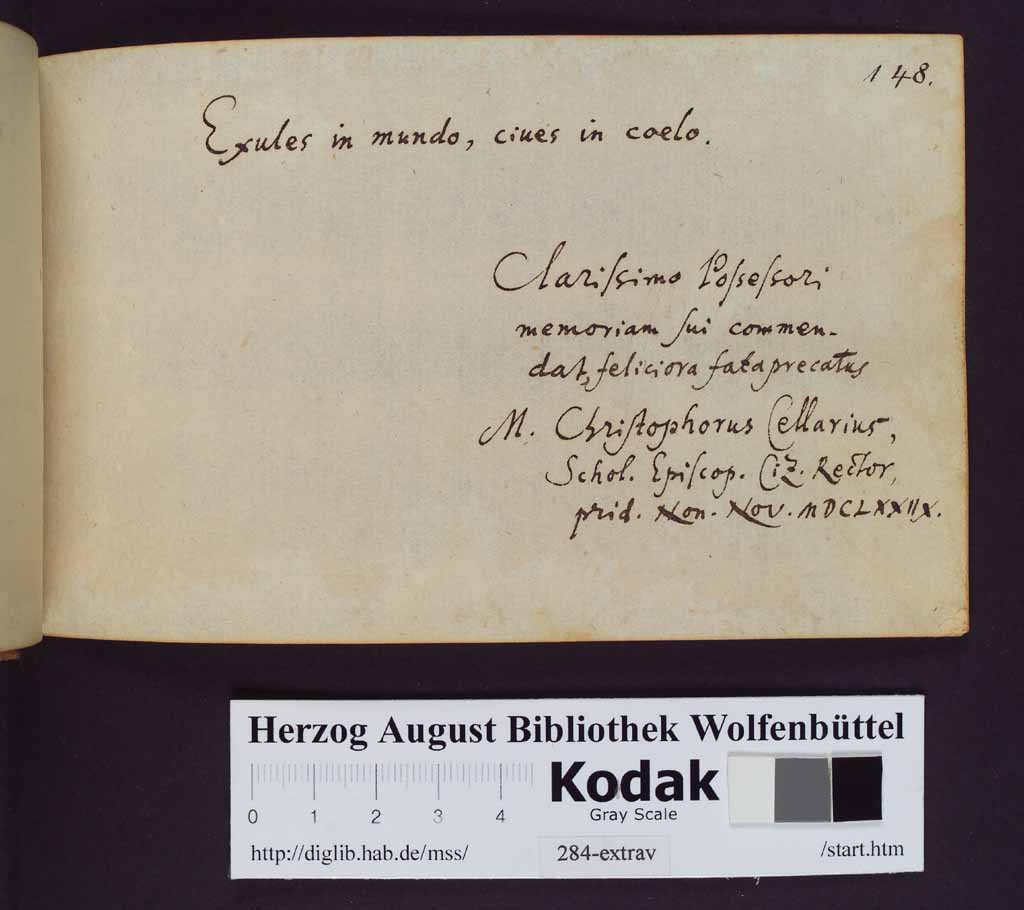 148.
Exules in mundo, ciues in coelo.
Clarissimo Possessori
memoriam sui commen-
dat, feliciora fata precatus
M. Christophorus Cellarius,
Schol. Episcop. Ciz. Rector,
prid. Non. Nov. MDCLXXIIX.
Herzog August Bibliothek Wolfenbüttel
Kodak
Gray Scale
0 1 2 3 4
http://diglib.hab.de/mss/ 284-extrav /start.htm